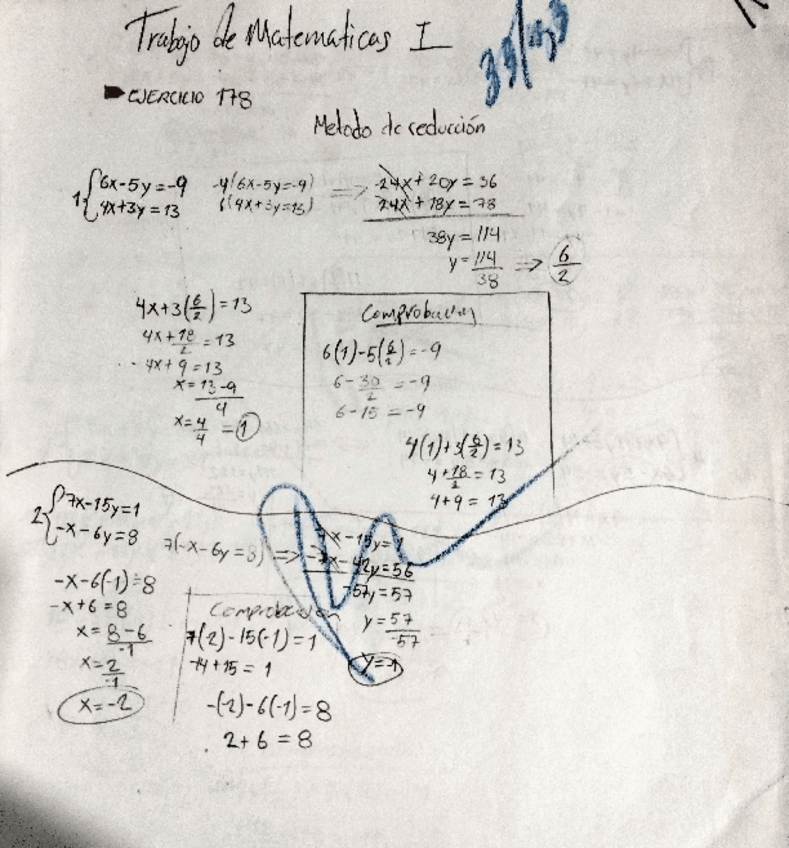 Trabajo de Matematicas I
EJERCICIO 178
Metodo de reducción
1 { 6x-5y=-9
4x+3y=13
-4(6x-5y=-9)
6(4x+3y=13)
=> -24x+20y=36
24x+18y=78
38y=114
y=114/38 => 6/2
4x+3(6/2)=13
4x+18/2=13
4x+9=13
x=13-9/4
x=4/4=1
Comprobación
6(1)-5(6/2)=-9
6-30/2=-9
6-15=-9
4(1)+3(6/2)=13
4+18/2=13
4+9=13
2 { 7x-15y=1
-x-6y=8
7(-x-6y=8) =>
7x-15y=1
-7x-42y=56
-57y=57
y=57/-57
y=-1
-x-6(-1)=8
-x+6=8
x=8-6/-1
x=2/-1
x=-2
Comprobacion
7(-2)-15(-1)=1
-14+15=1
-(-2)-6(-1)=8
2+6=8